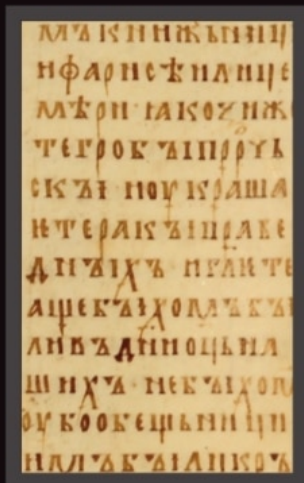 МЪКНИЖЬНИЦ
ИФАРИСѢИЛИЦЕ
МѢРИ ꙖКОꙀИЖ
ТЕГРОБЪІПРРЧЬ
СКЪІ ИОУКРАША
ѤТЕРАКЪІПРАВЕ
ДНЪІХЪ ИГЛѤТЕ
АЩЕБЪІХОМЪБЪІ
ЛИВЪДНИОЦЬНА
ШИХЪ НЕБЪІХОМ
ОУБООБЕЩЬНИЦИ
ИМЪБЪІЛИКРЪ